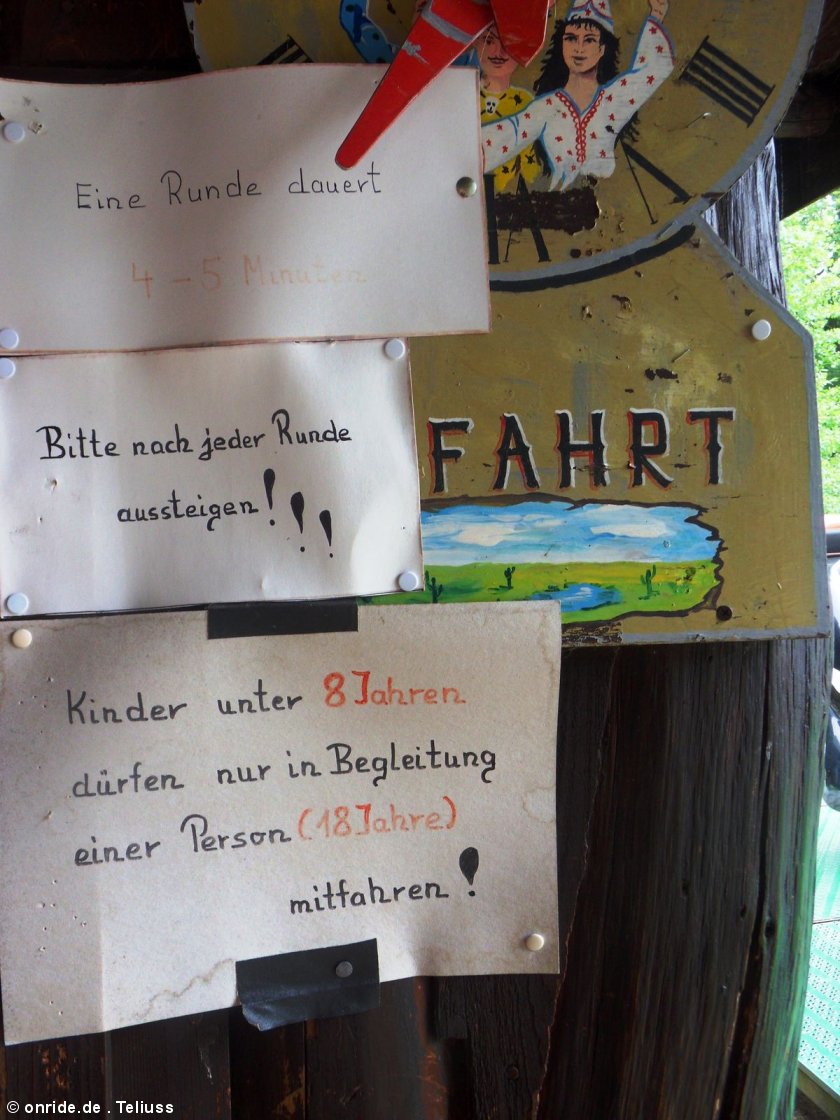 Eine Runde dauert
4 - 5 Minuten
Bitte nach jeder Runde
aussteigen!!!
FAHRT
Kinder unter 8 Jahren
dürfen nur in Begleitung
einer Person (18 Jahre)
mitfahren!
© onride.de . Teliuss